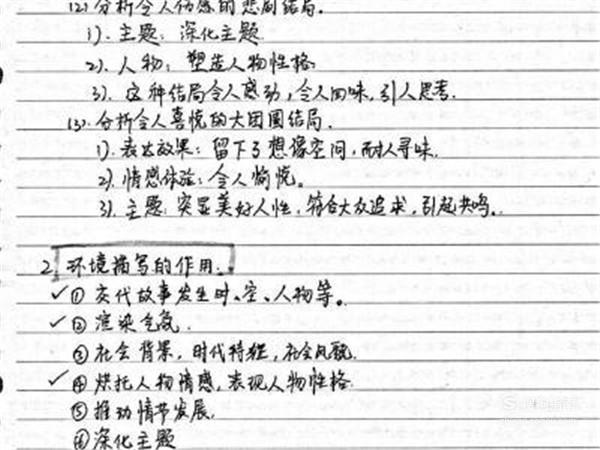 (2).分析令人伤感的悲剧结局.
1).主题:深化主题.
2).人物:塑造人物性格.
3).这种结局令人感动,令人回味,引人思考.
(3).分析令人喜悦的大团圆结局.
1).表达效果:留下了想像空间,耐人寻味.
2).情感体验:令人愉悦。
3).主题:突显美好人性,符合大众追求,引起共鸣.
2.环境描写的作用.
✓①交代故事发生时、空、人物等。
✓②渲染气氛.
③社会背景,时代特征,社会风貌.
✓④烘托人物情感,表现人物性格.
⑤推动情节发展.
⑥深化主题